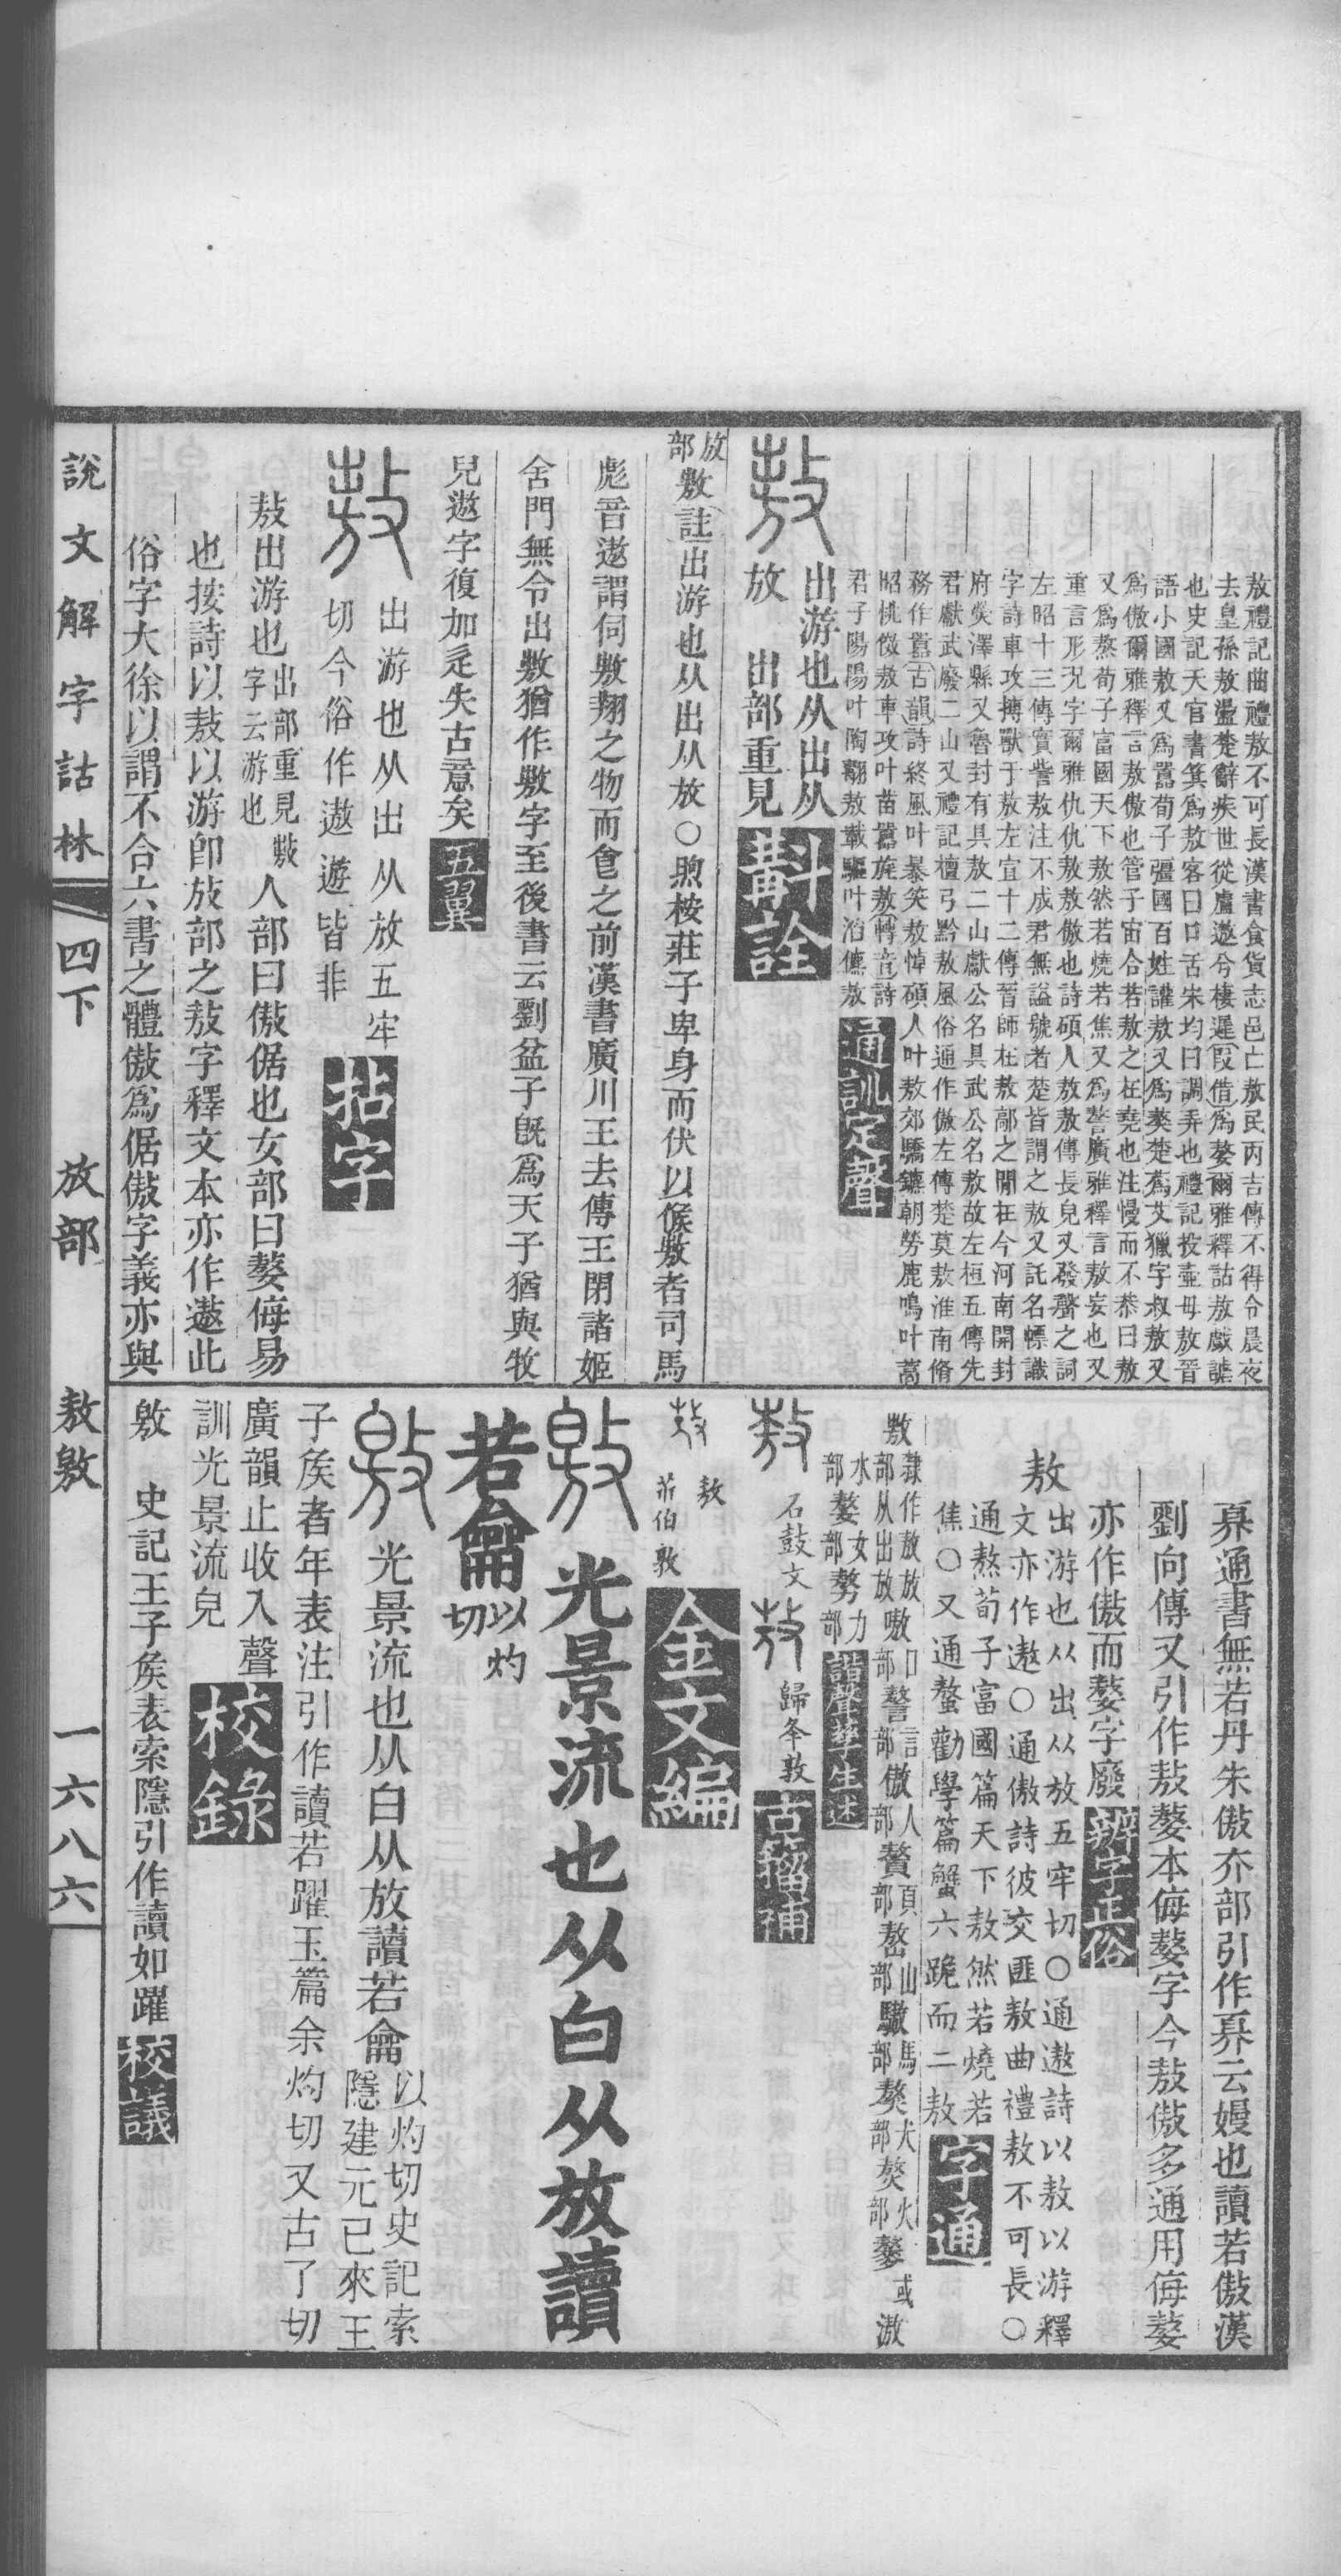 敖禮記曲禮敖不可長漢書食貨志邑亡敖民丙吉傳不得令晨夜
去皇孫敖盪楚辭疾世從盧遨兮棲遲叚借爲嫯爾雅釋詁敖戲謔
也史記天官書箕爲敖客曰口舌宋均曰調弄也禮記投壺毋敖晉
語小國敖又爲嚻荀子彊國百姓讙敖又爲獒楚蔿艾獵字叔敖又
爲傲爾雅釋言敖傲也管子宙合若敖之在堯也注慢而不恭曰敖
又爲熬荀子富國天下敖然若燒若焦又爲謷廣雅釋言敖妄也又
重言形況字爾雅仇仇敖敖傲也詩碩人敖敖傳長皃又發聲之詞
左昭十三傳實訾敖注不成君無諡號者楚皆謂之敖又託名幖識
字詩車攻搏獸于敖左宣十二傳晉師在敖鄗之閒在今河南開封
府滎澤縣又魯封有具敖二山獻公名具武公名敖故左桓五傳先
君獻武廢二山又禮記檀弓黔敖風俗通作傲左傳楚莫敖淮南脩
務作嚻古韻詩終風叶暴笑敖悼碩人叶敖郊驕鑣朝勞鹿鳴叶蒿
昭恌傚敖車攻叶苗嚻旄敖轉音詩
君子陽陽叶陶翿敖載驅叶滔儦敖通訓定聲
敖出游也从出从
放 出部重見斠詮
放部敖註出游也从出从放○煦桉莊子卑身而伏以候敖者司馬
彪音遨謂伺敖翔之物而食之前漢書廣川王去傳王閉諸姬
舍門無令出敖猶作敖字至後書云劉盆子旣爲天子猶與牧
兒遨字復加辵失古意矣五翼
敖出游也从出从放五牢
切今俗作遨遊皆非拈字
敖出游也出部重見敖字云游也人部曰傲倨也女部曰嫯侮易
也按詩以敖以游卽放部之敖字釋文本亦作遨此
俗字大徐以謂不合六書之體傲爲倨傲字義亦與
奡通書無若丹朱傲夰部引作奡云嫚也讀若傲漢
劉向傳又引作敖嫯本侮嫯字今敖傲多通用侮嫯
亦作傲而嫯字廢辨字正俗
敖出游也从出从放五牢切○通遨詩以敖以游釋
文亦作遨○通傲詩彼交匪敖曲禮敖不可長○
通熬荀子富國篇天下敖然若燒若
焦○又通螯勸學篇蟹六跪而二敖字通
敖隸作敖放部从出放嗷口部謷言部傲人部贅頁部嶅山部驁馬部獒犬部熬火部鏊或滶
水部嫯女部勢力部諧聲孳生述
敖石鼓文敖歸夆敦古籀補
敖敖𦬣伯敦金文編
敫光景流也从白从放讀
若龠以灼切
敫光景流也从白从放讀若龠以灼切史記索隱建元已來王
子矦者年表注引作讀若躍玉篇余灼切又古了切
廣韻止收入聲
訓光景流皃校錄
敫 史記王子矦表索隱引作讀如躍校議
說文解字詁林 四下 放部 敖敫 一六八六